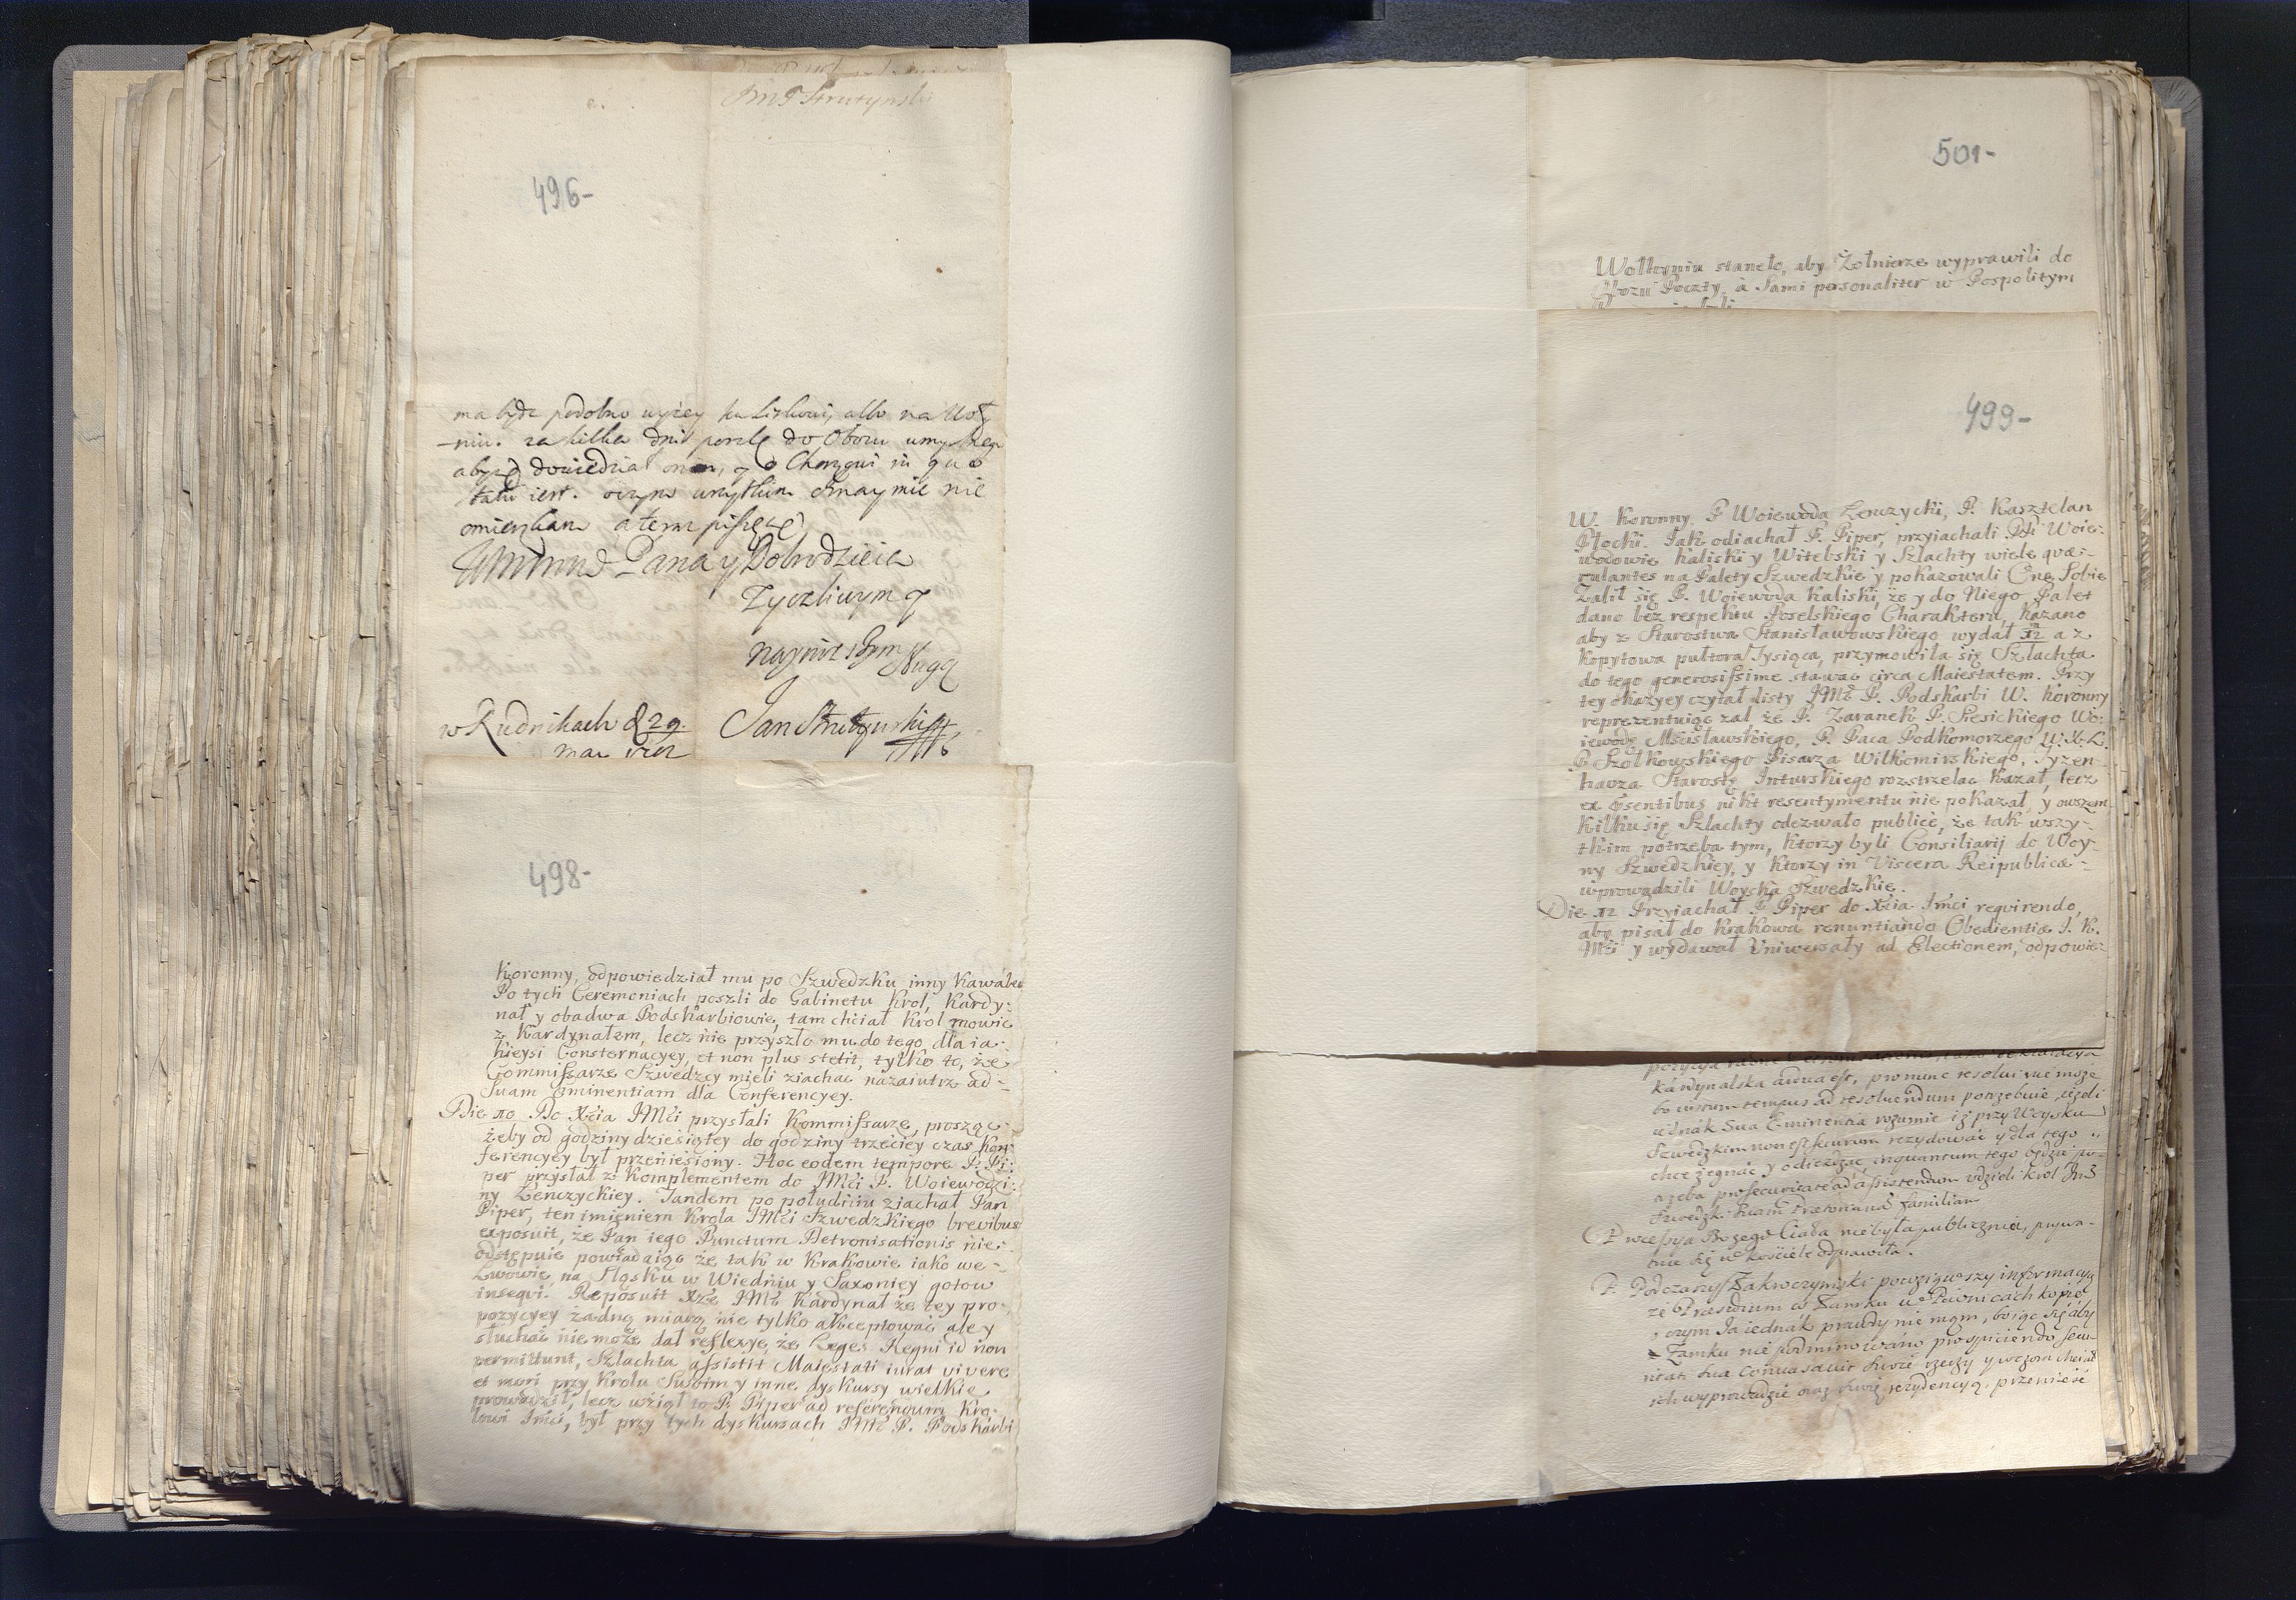 JMP Strutynski
496-
ma bydz podobno wyżey ku Lisku, albo na Woły
-niu. za kilka dni poszlę do Obozu umyślnego
abym dowiedział o Chorągwi in quo
statu iest. oczym wszytkim oznaymić nie
omieszkam a teraz piszę się
Pana y Dobrodzieia
Zyczliwym y
nayniższym sługą
w Rudnikach d 29. Jan Strutynski
498-
Koronny, odpowiedział mu po Szwedzku inny Kawaler
Po tych Ceremoniach poszli do Gabinetu Krol, Kardy-
nał y obadwa Podskarbiowie, tam chciał Krol mowić
z Kardynałem, lecz nie przyszło mu do tego, dla ia-
kieysi Consternacyey, et non plus stetit, tylko to, że
Commissarze Szwedzcy mieli ziachać nazaiutrz ad
Suam Eminentiam dla Conferencyey.
Die 10 Do Xcia JMci przysłali Kommissarze, prosząc
żeby od godziny dziesiątey do godziny trzeciey czas Kon-
ferencyey był przeniesiony. Hoc eodem tempore P. Pi-
per przysłał z Komplementem do JMci P. Woiewodzi-
ny Lenczyckiey. Tandem po południu ziachał Pan
Piper, ten imieniem Krola JMci Szwedzkiego brevibus
exposuit, że Pan iego Punctum Detronisationis nie
odstępuie powiadaiąc że tak w Krakowie iako we
Lwowie, na Sląsku w Wiedniu y Saxoniey gotow
insequi. Reposuit Xże JMć Kardynał że tey pro-
pozycyey żadną miarą nie tylko akceptować ale y
słuchać nie może dał reflexyę, że Leges Regni id non
permittunt, Szlachta assistit Maiestati iurat vivere
et mori przy Krolu Swoim y inne dyskursy wielkie
prowadził, lecz wziął to P. Piper ad referendum Kro-
lowi Jmci, był przy tych dyskursach JMć P. Podskarbi
501-
Wołhyniu staneło, aby Żołnierze wyprawili do
Obozu Poczty, a Sami personaliter w Pospolitym
499-
W. Koronny, P Woiewoda Lenczycki, P. Kasztelan
Płocki. Jak odiachał P. Piper, przyiachali PP Woie-
wodowie Kaliski y Witebski y Szlachty wiele quae-
rulantes na Palety Szwedzkie y pokazowali One Sobie
Zalił się P. Woiewoda Kaliski, że y do Niego Palet
dano bez respektu Poselskiego Charakteru, Kazano
aby z Starostwa Stanisławowskiego wydał 12 a z
Kopytowa pułtora Tysiąca, przymowiła się Szlachta
do tego generosissime stawać circa Maiestatem. Przy
tey okazyey czytał listy JMć P. Podskarbi W. Koronny
reprezentuiąc zal, że P. Zaranek P. Siesickiego Wo-
iewodę Mscisławskiego, P. Paca Podkomorzego W. X. L.
P Szołkowskiego Pisarza Wilkomirskiego, Tyzen-
hauza Starostę Inturskiego rozstrzelać kazał, lecz
ex psentibus nikt resentymentu nie pokazał, y owszem
Kilku się Szlachty odezwało publice, że tak wszy-
tkim potrzeba tym, ktorzy byli Consiliarij do Woy-
ny Szwedzkiey, y ktorzy in Viscera Reipublicae
wprowadzili Woyska Szwedzkie.
Die 12 Przyiachał P Piper do Xcia Jmci requirendo,
aby pisał do Krakowa renuntiando Obedientiae J. K.
Mci y wydawał Uniwersały ad Electionem, odpowie-
kardynalska ardua est, pro nunc resolui nie może
bo virum tempus ad resoluendum potrzebuie, ieżeli
iednak Sua Eminentia rozumie iż przy Woysku
Szwedzkim non est securum rezydować y dla tego
chce żegnać y odieżdżać, inquantum tego będzie po-
azeba pro securitate ad assistendum udzieli Krol Jmć
Szwedzki Suam Praetorianą familiam
Processya Bożego Ciała nie była publicznie, prywa-
tnie się w kościele odprawiła.
P. Podczaszy Zakroczymski powziąwszy informacyą
że Praesidium w Zamku w Piwnicach kopie
, czym Ja iednak prawdy nie mam, boiąc się aby
Zamku nie podminowano prospiciendo secu-
ritati sua convasauit swoie rzeczy y wczora chciał
ich wyprowadzić oraz swoię rezydencyą przenieść